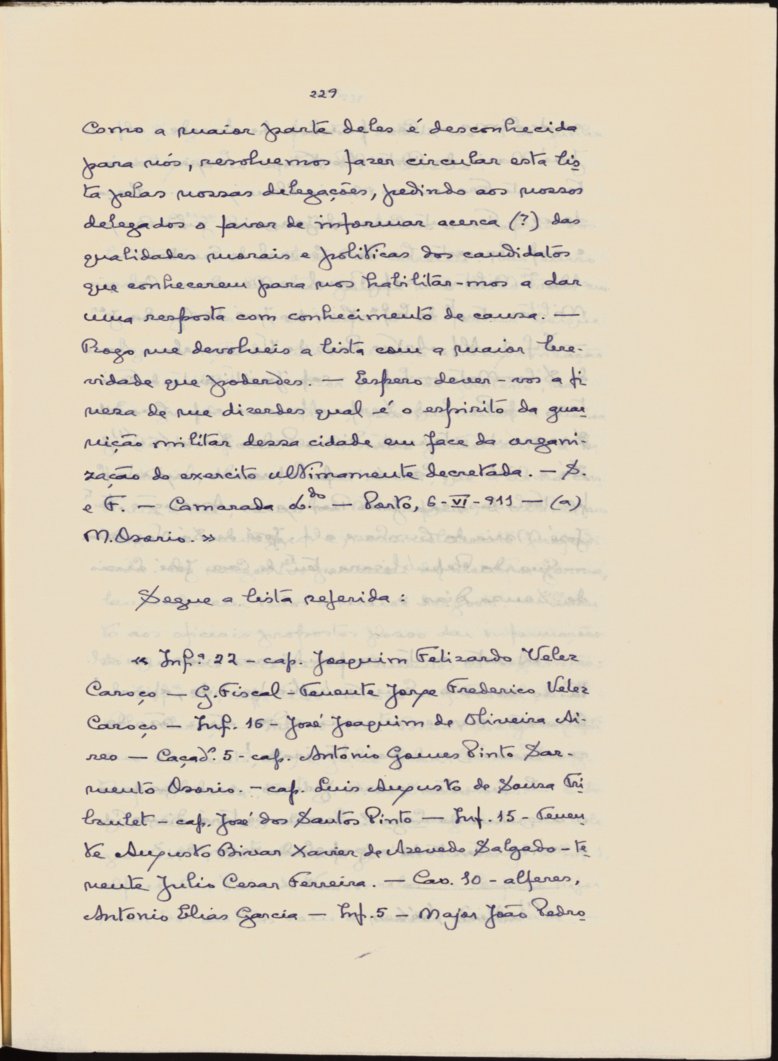 229
Como a maior parte deles é desconhecida
para nós, resolvemos fazer circular esta lis-
ta pelas nossas delegações, pedindo aos nossos
delegados o favor de informar acerca (?) das
qualidades morais e politicas dos candidatos
que conhecerem para nos habilitar-mos a dar
uma resposta com conhecimento de causa. —
Rogo me devolveis a lista com a maior bre-
vidade que poderdes. — Espero dever-vos a fi-
neza de me dizerdes qual é o espirito da guar-
nição militar dessa cidade em face da organi-
zação do exercito ultimamente decretada. — S.
e F. — Camarada d.do — Porto, 6-VI-911 — (a)
M. Osorio. »
Segue a lista referida :
« Inf.ª 22 - cap. Joaquim Felizardo Velez
Caroço — G. Fiscal - Tenente Jorge Frederico Velez
Caroço — Inf. 16 - José Joaquim de Oliveira Ai-
reo — Caçad.s 5 - cap. Antonio Gomes Pinto Sar-
mento Osorio. - cap. Luis Augusto de Sousa Tri-
baulet - cap. José dos Santos Pinto — Inf. 15 - Tenen-
te Augusto Bivar Xavier de Azevedo Salgado - te-
nente Julio Cesar Ferreira. — Cav. 10 - alferes,
Antonio Elias Garcia — Inf. 5 — Major João Pedro